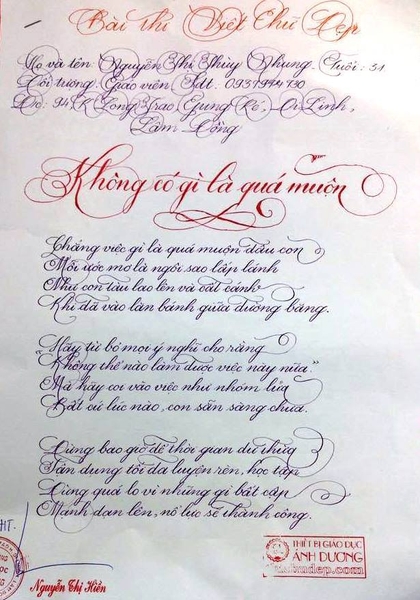 Bài thi Viết Chữ Đẹp
Họ và tên: Nguyễn Thị Thùy Nhung. Tuổi: 51
Đối tượng: Giáo viên. Sđt: 0937994730
Đ/c: 94 K' Long Trao, Gung Ré, Di Linh,
Lâm Đồng
Không có gì là quá muộn
Chẳng việc gì là quá muộn đâu con
Mỗi ước mơ là ngôi sao lấp lánh
Như con tàu lao lên và cất cánh
Khi đã vào lăn bánh giữa đường băng.
"Hãy từ bỏ mọi ý nghĩ cho rằng
Không thể nào làm được việc này nữa."
Mà hãy coi vào việc như nhóm lửa
Bất cứ lúc nào, con sẵn sàng chưa.
Đừng bao giờ để thời gian dư thừa
Tận dụng tối đa luyện rèn, học tập
Đừng quá lo vì những gì bất cập
Mạnh dạn lên, nỗ lực sẽ thành công.
HT.
Nguyễn Thị Hiền
THIẾT BỊ GIÁO DỤC
ÁNH DƯƠNG